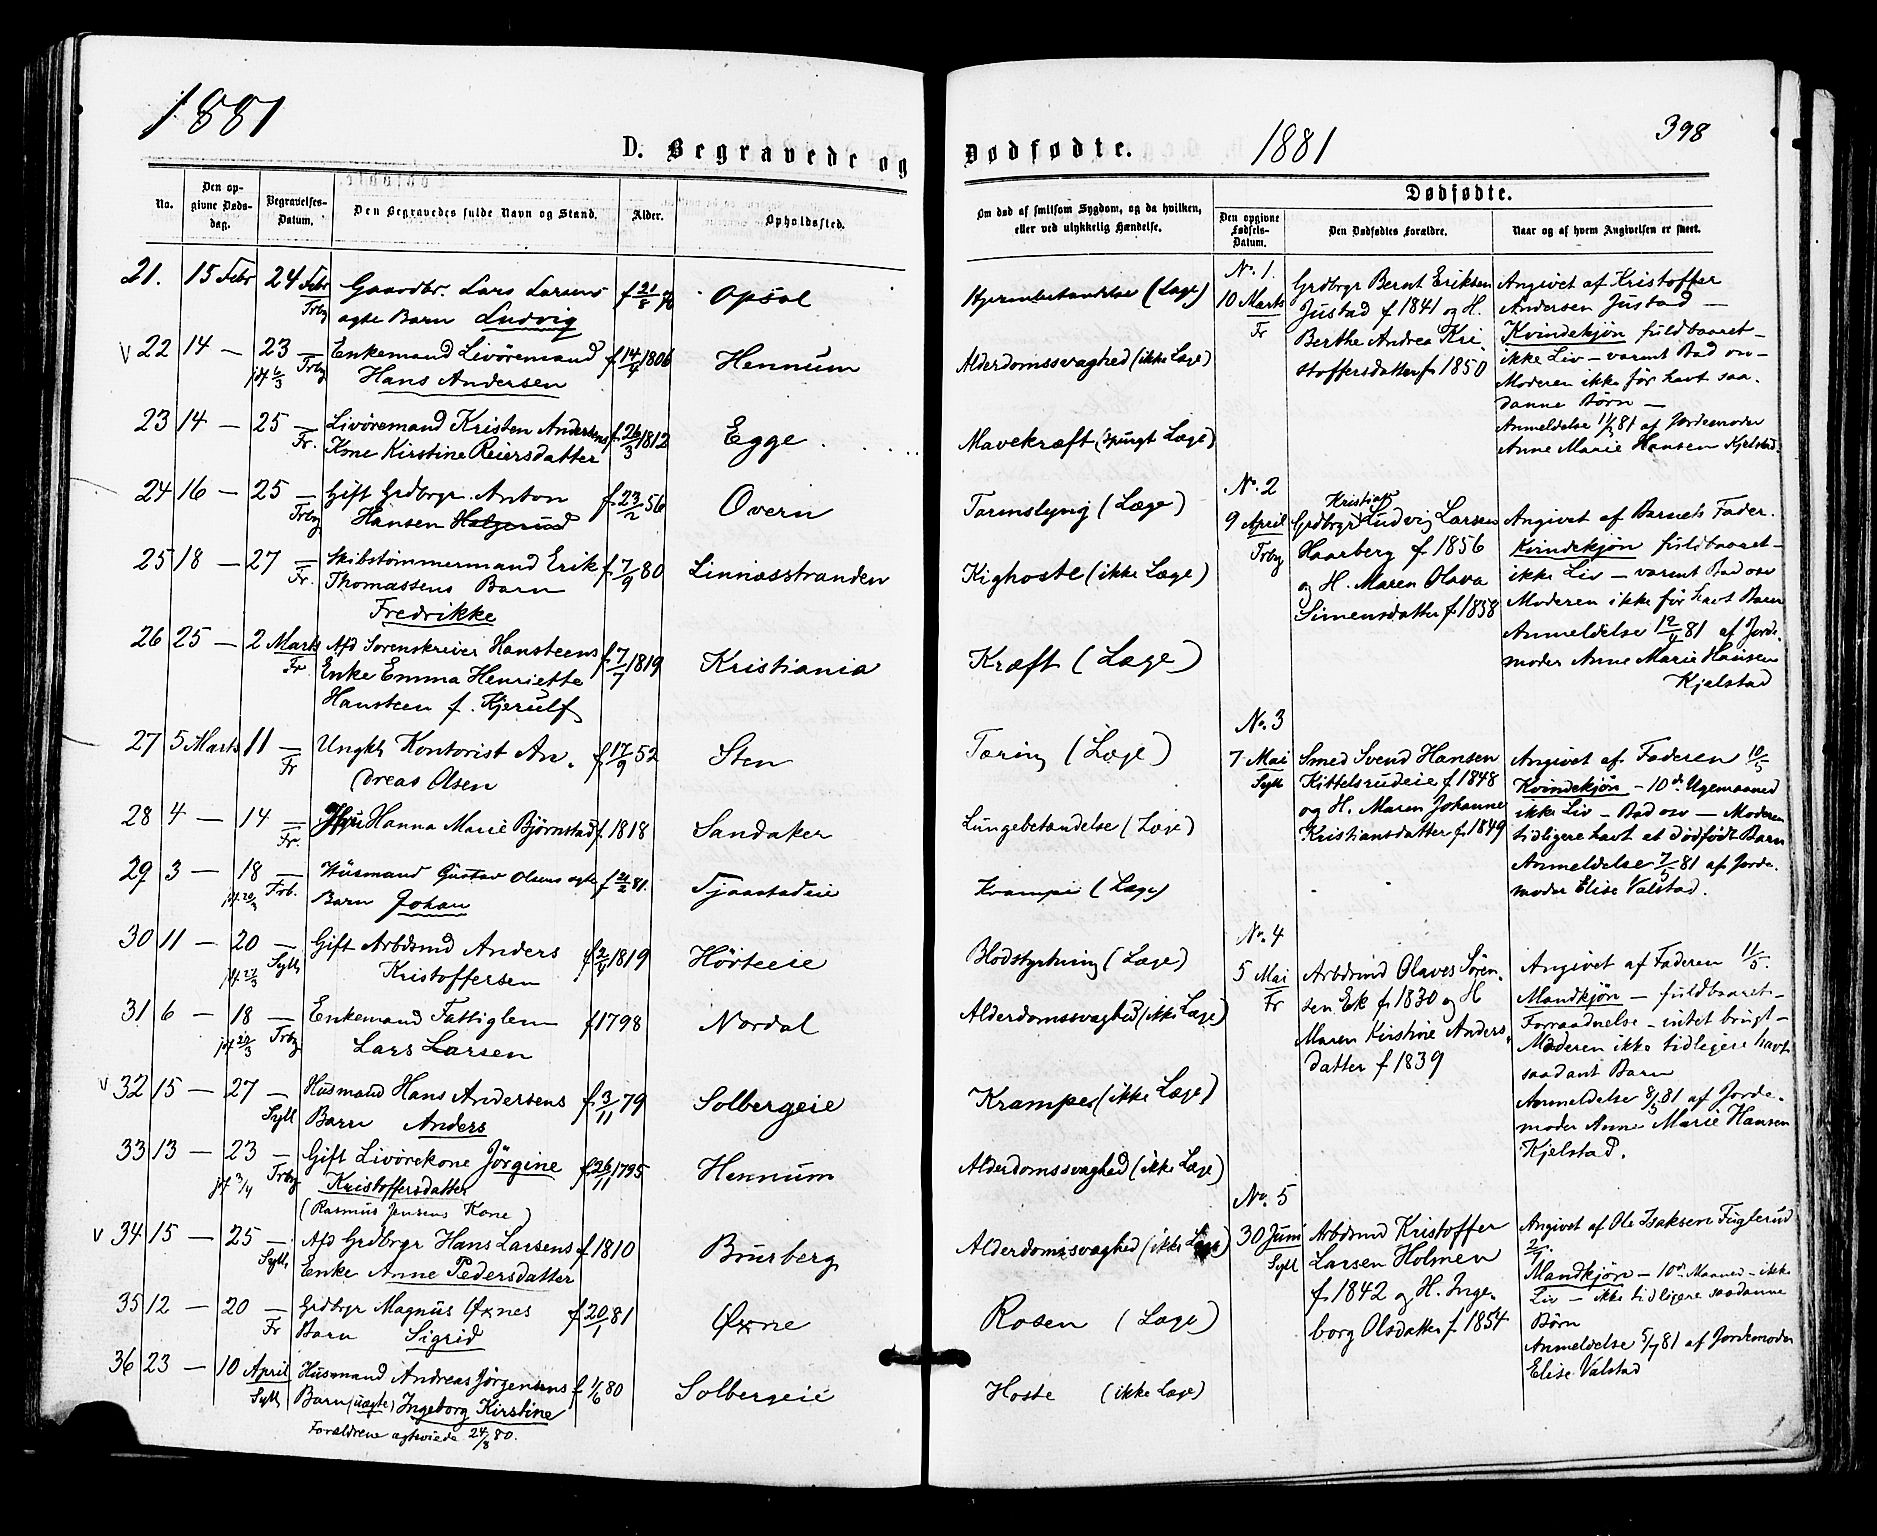 1881
D. Begravede og
No.
Den op-
givne Døds-
dag.
Begravelses-
Datum.
Den Begravedes fulde Navn og Stand.
Alder.
Opholdssted.
21. 15 Febr 24 Febr Gaardbr. Lars Larsens f 21/8 Opsal
Frbg ægte Barn Ludvig
v 22 14 — 23 — Enkemand Livøremand f 14/4 1806 Hennum
jdf 6/3 Frbg Hans Andersen
23 14 — 25 — Livøremand Kristen Andersens f 26/3 1812 Egge
Fr. Kone Kirstine Reiersdatter
24 16 — 25 — Gift Grdbrgr. Anton f 23/2 56 Overn
Frbg Hansen Halgerud
25 18 — 27 — Skibstømmermand Erik f 7/9 80 Linnæsstranden
Fr. Thomassens Barn
Fredrikke
26 25 — 2 Marts Afd Sorenskriver Hansteens f 7/7 1819 Kristiania
Fr. Enke Emma Henriette
Hansteen f. Kjerulf
27 5 Marts 11 — Ungkl Kontorist An- f 17/9 52 Sten
Fr dreas Olsen
28 4 — 14 — Hanna Marie Bjørnstad f 1818 Sandaker
Fr.
29 3 — 18 — Husmand Gustav Olsens ægte f 21/2 81. Tjaastadeie
Frb. Barn Johan
30 11 — 20 — Gift Arbdsmd Anders f 2/4 1819 Hørteeie
jdf 27/3 Syll Kristoffersen
31 6 — 18 — Enkemand Fattiglem f 1798 Nordal
jdf 27/3 Frbg Lars Larsen
v 32 15 — 27 — Husmand Hans Andersens f 3/11 79 Solbergeie
Syll Barn Anders
33 13 — 23 — Gift Livørekone Jørgine f 26/11 1795 Hennum
jdf 3/4 Frbg Kristoffersdatter
(Rasmus Jensens Kone)
v 34 15 — 25 — Afd Grdbrgr Hans Larsens f 1810 Bursberg
Syll. Enke Anne Pedersdatter
35 12 — 20 — Grdbrgr Magnus Øxnes f 20/1 81 Øxne
Fr Barn Sigrid
36 23 — 10 April Husmand Andreas Jørgensens f 1/6 80 Solbergeie
Sylls Barn (uægte) Ingeborg Kirstine
Forældrene ægteviede 24/8 80.
Dødfødte.
1881
398
Om død af smitsom Sygdom, og da hvilken,
eller ved ulykkelig Hændelse.
Dødfødte.
Den opgivne
Fødsels-
Datum.
Den Dødfødtes Forældre.
Naar og af hvem Angivelsen er skeet.
Hjernebetændelse (Læge)
Alderdomssvaghed (ikke Læge)
Mavekræft (spurgt Læge)
Tarmslyng (Læge)
Kighoste (ikke Læge)
Kræft (Læge)
Tæring (Læge)
Lungebetændelse (Læge)
Krampe (Læge)
Blodstyrtning (Læge)
Alderdomssvaghed (ikke Læge)
Krampe (ikke Læge)
Alderdomssvaghed (ikke Læge)
Alderdomssvaghed (ikke Læge)
Rosen (Læge)
Hoste (ikke Læge)
No. 1
10 Marts
Fr
Grdbrgr Bernt Eriksen
Justad f 1841 og H.
Berthe Andrea Kri-
stoffersdatter f. 1850
Angivet af Kristoffer
Andersen Justad —
Kvindekjøn fuldbaaret —
ikke Liv — varmt Bad osv —
Moderen ikke før havt saa-
danne Børn —
Anmeldelse 11/3 81 af Jordemoder
Anne Marie Hansen Kjelstad.
No. 2
9 April
Frbg
Kristian
Grdbrgr Ludvig Larsen
Haarberg f 1856
og H. Maren Olava
Simensdatter f. 1858
Angivet af Barnets Fader.
Kvindekjøn fuldbaaret —
ikke Liv — varmt Bad osv
Moderen ikke før havt Børn
Anmeldelse 12/4 81 af Jorde-
moder Anne Marie Hansen
Kjelstad
No. 3
7 Mai
Syll
Smed Svend Hansen
Kittelsrudeie f 1848
og H. Maren Johanne
Kristiansdatter f. 1849
Angivet af Faderen 10/5
Kvindekjøn — 10de Ugemaaned
ikke Liv — Bad osv — Moderen
tidligere havt et dødfødt Barn
Anmeldelse 7/5 81 af Jorde-
moder Elise Valstad.
No. 4
5 Mai
Fr
Arbdsmd Olaves Søren-
sen Ek f. 1830 og H
Maren Kirstine Anders-
datter f 1839
Angivet af Faderen 11/5.
Mandkjøn — fuldbaaret —
Forraadnelse — intet brugt —
Moderen ikke tidligere havt
saadant Barn
Anmeldelse 8/5 81 af Jorde-
moder Anne Marie Hansen
Kjelstad.
No. 5
30 Juni
Syll
Arbdsmd Kristoffer
Larsen Holmen
f. 1842 og H. Inge-
borg Olsdatter f. 1854
Angivet af Ole Isaksen Fuglerud
2/7.
Mandkjøn — 10de Maaned — ikke
Liv — ikke tidligere saadanne
Børn
Anmeldelse 5/7 81 af Jordemoder
Elise Valstad